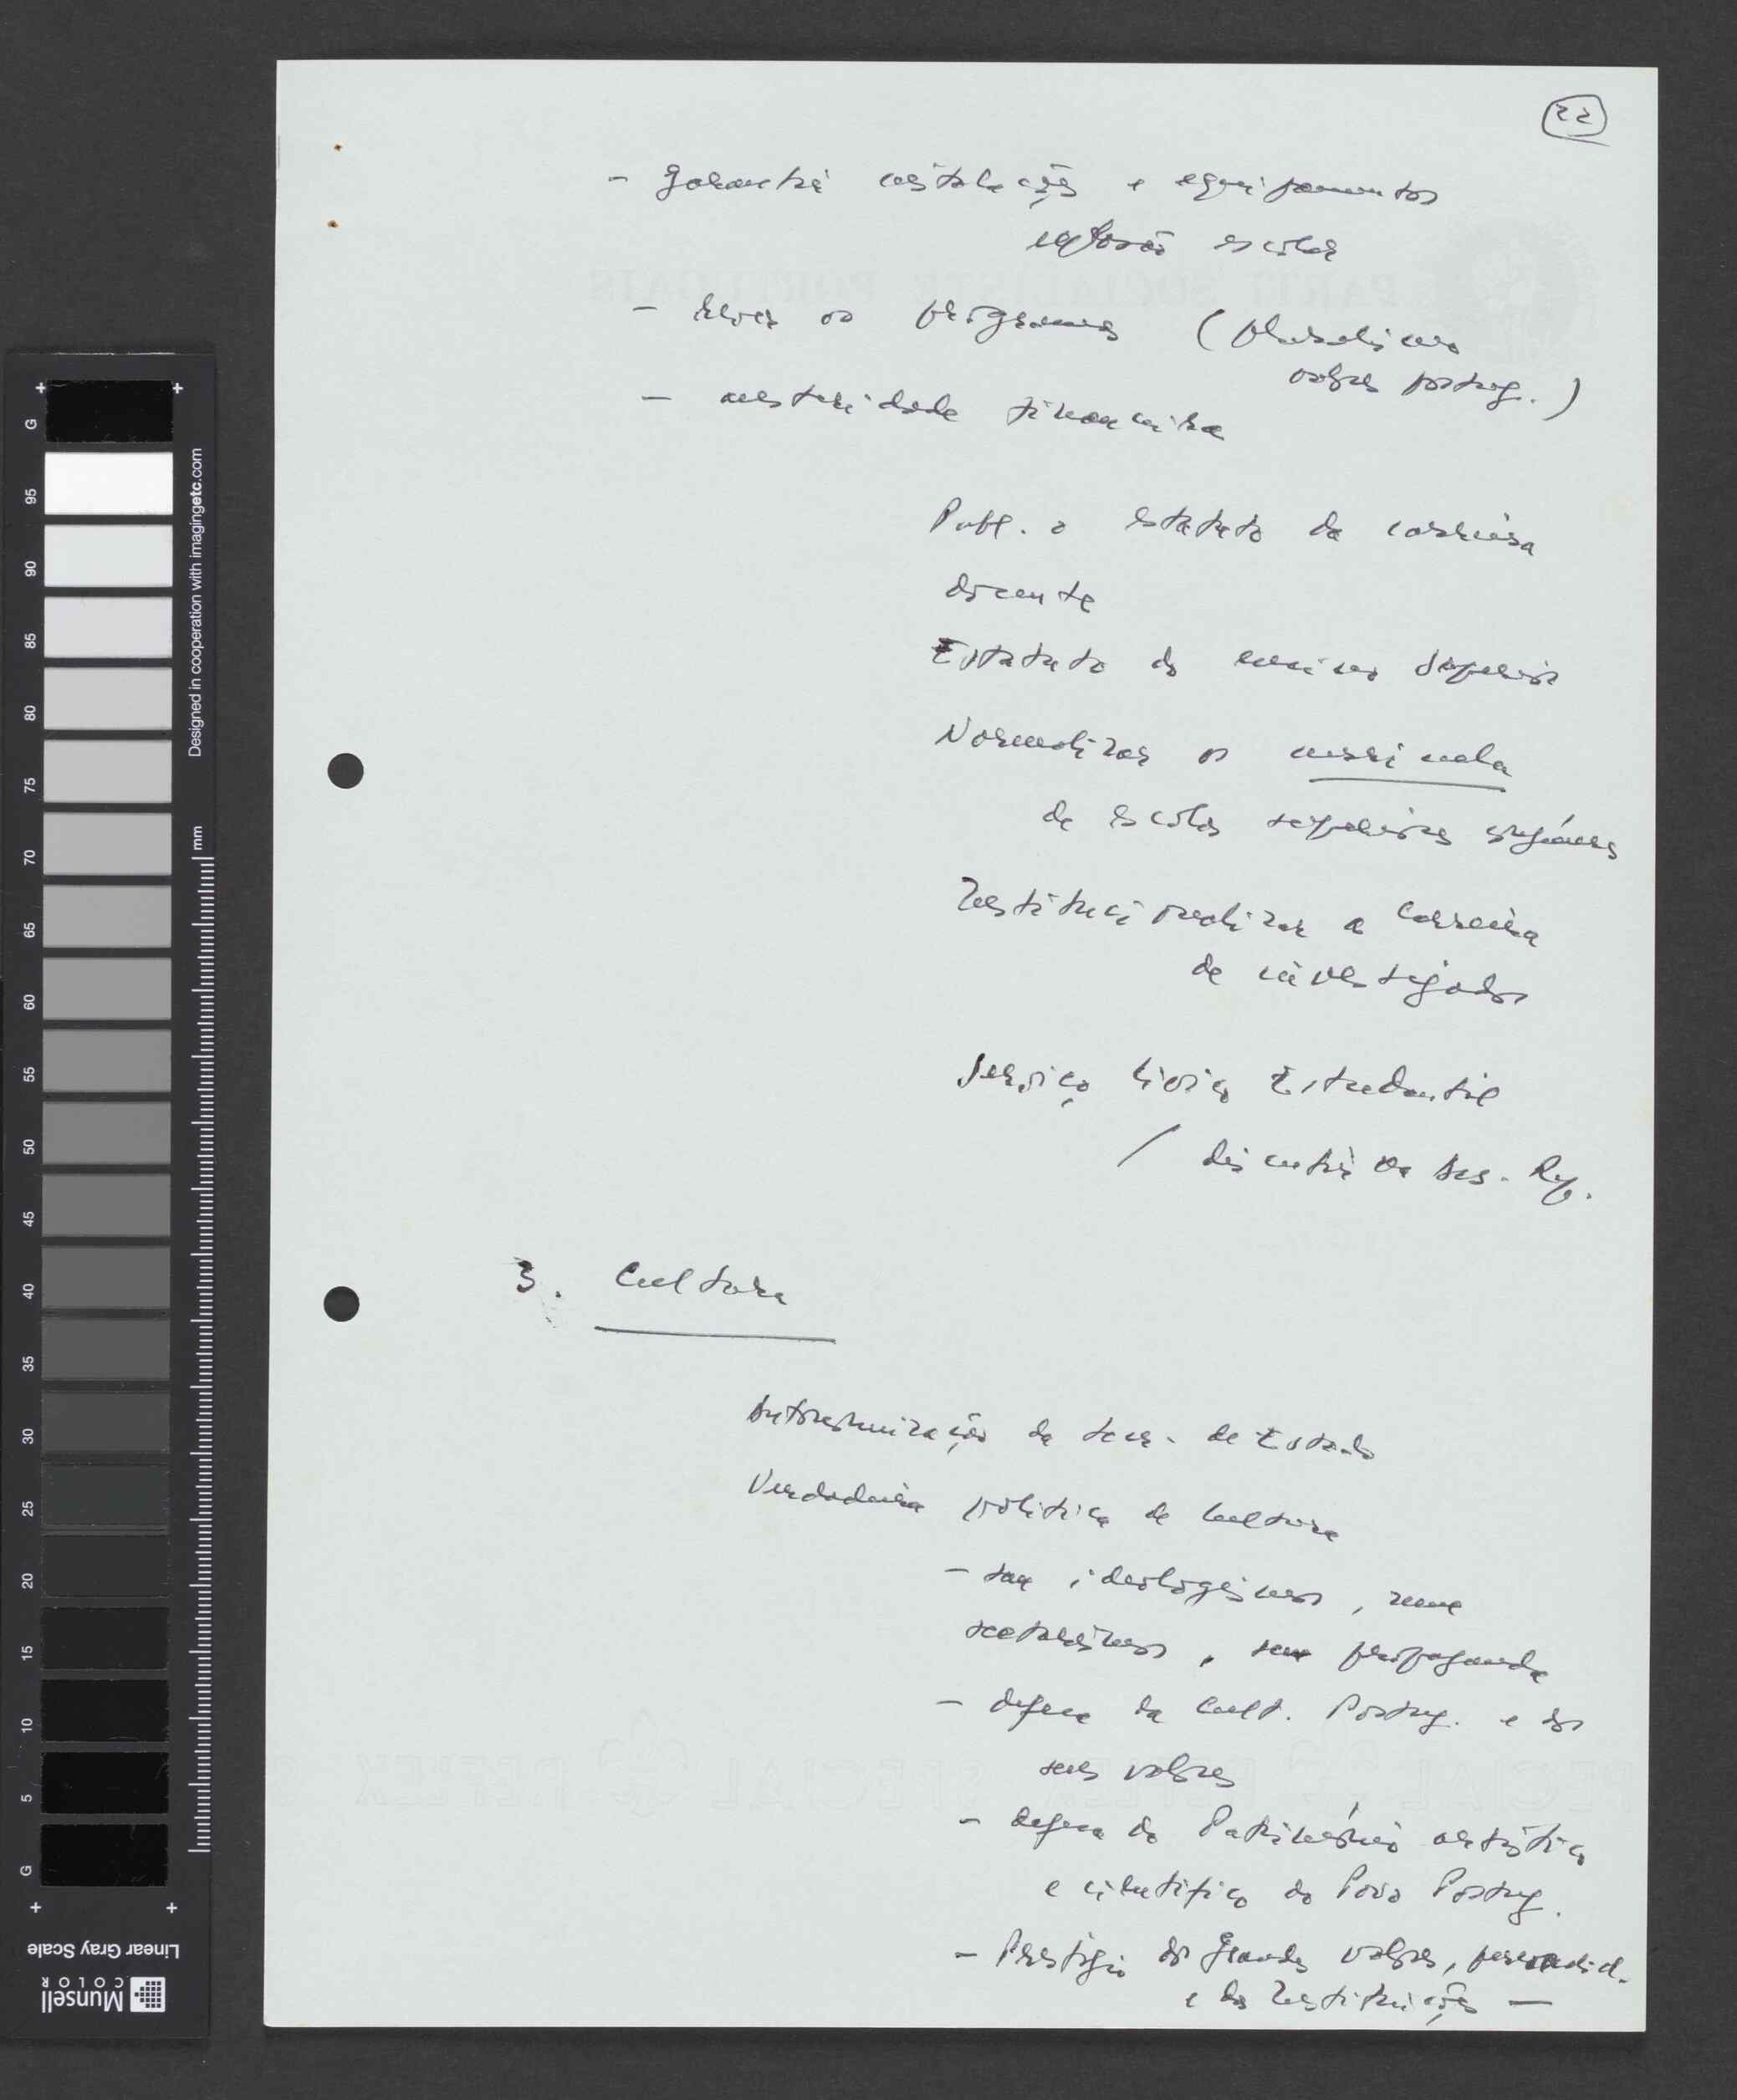 22
- garantir instalações e equipamentos
explosão escolar
- rever os programas (pluralismo
valores portug.)
- austeridade financeira
Publ. o estatuto da carreira
docente
Estatuto do ensino superior
Normalizar os curricula
de escolas superiores
Institucionalizar a Carreira
de investigador
Serviço Cívico Estudantil
/ discutir na Ass. Rep.
3. Cultura
Autonomização da Secr. de Estado
Verdadeira política de Cultura
- sem ideologismos, sem
sectarismos, sem propaganda
- defesa da Cult. Portug. e dos
seus valores
- defesa do Património artístico
e científico do Povo Portug.
- Prestígio dos grandes valores, personalid.
e das Instituições —
PARTI SOCIALISTE PORTUGAIS
SPECIAL REFLEX SPECIAL REFLEX
G 95 90 85 80 75 70 65 60 55 50 45 40 35 30 25 20 15 10 5 G
mm
Designed in cooperation with imagingetc.com
Linear Gray Scale
Munsell
COLOR